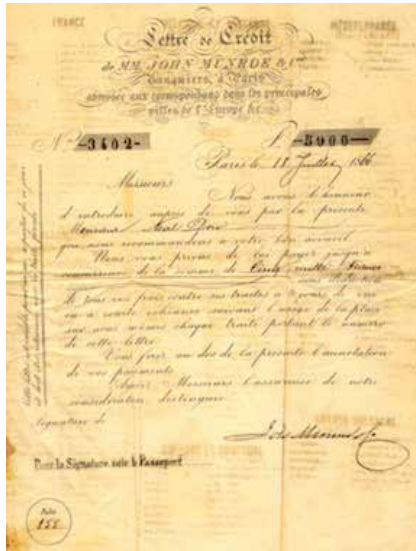 FRANCE
Lettre de Crédit
de MM. JOHN MUNROE & Cie
Banquiers, à Paris
adressée aux correspondans dans les principales
villes de l'Europe &c.
No. -3402- -5000-
Paris le 18 Juillet 1866
Messieurs
Nous avons l'honneur
d'introduire auprès de vous par la présente
Monsieur Neal Dow
que nous recommandons à votre bon accueil.
Nous vous prions de lui payer jusqu'à
concurrence de la somme de Cinq mille francs
sous déduction
de tous vos frais contre ses traites à jours de vue
ou à courte échéance suivant l'usage de la place
sur nous mêmes chaque traite portant le numéro
de cette lettre.
Vous ferez au dos de la présente l'annotation
de vos payements.
Agréez Messieurs l'assurance de notre
considération distinguée.
Signature de
John Munroe & Co
Pour la Signature voir le Passeport
158